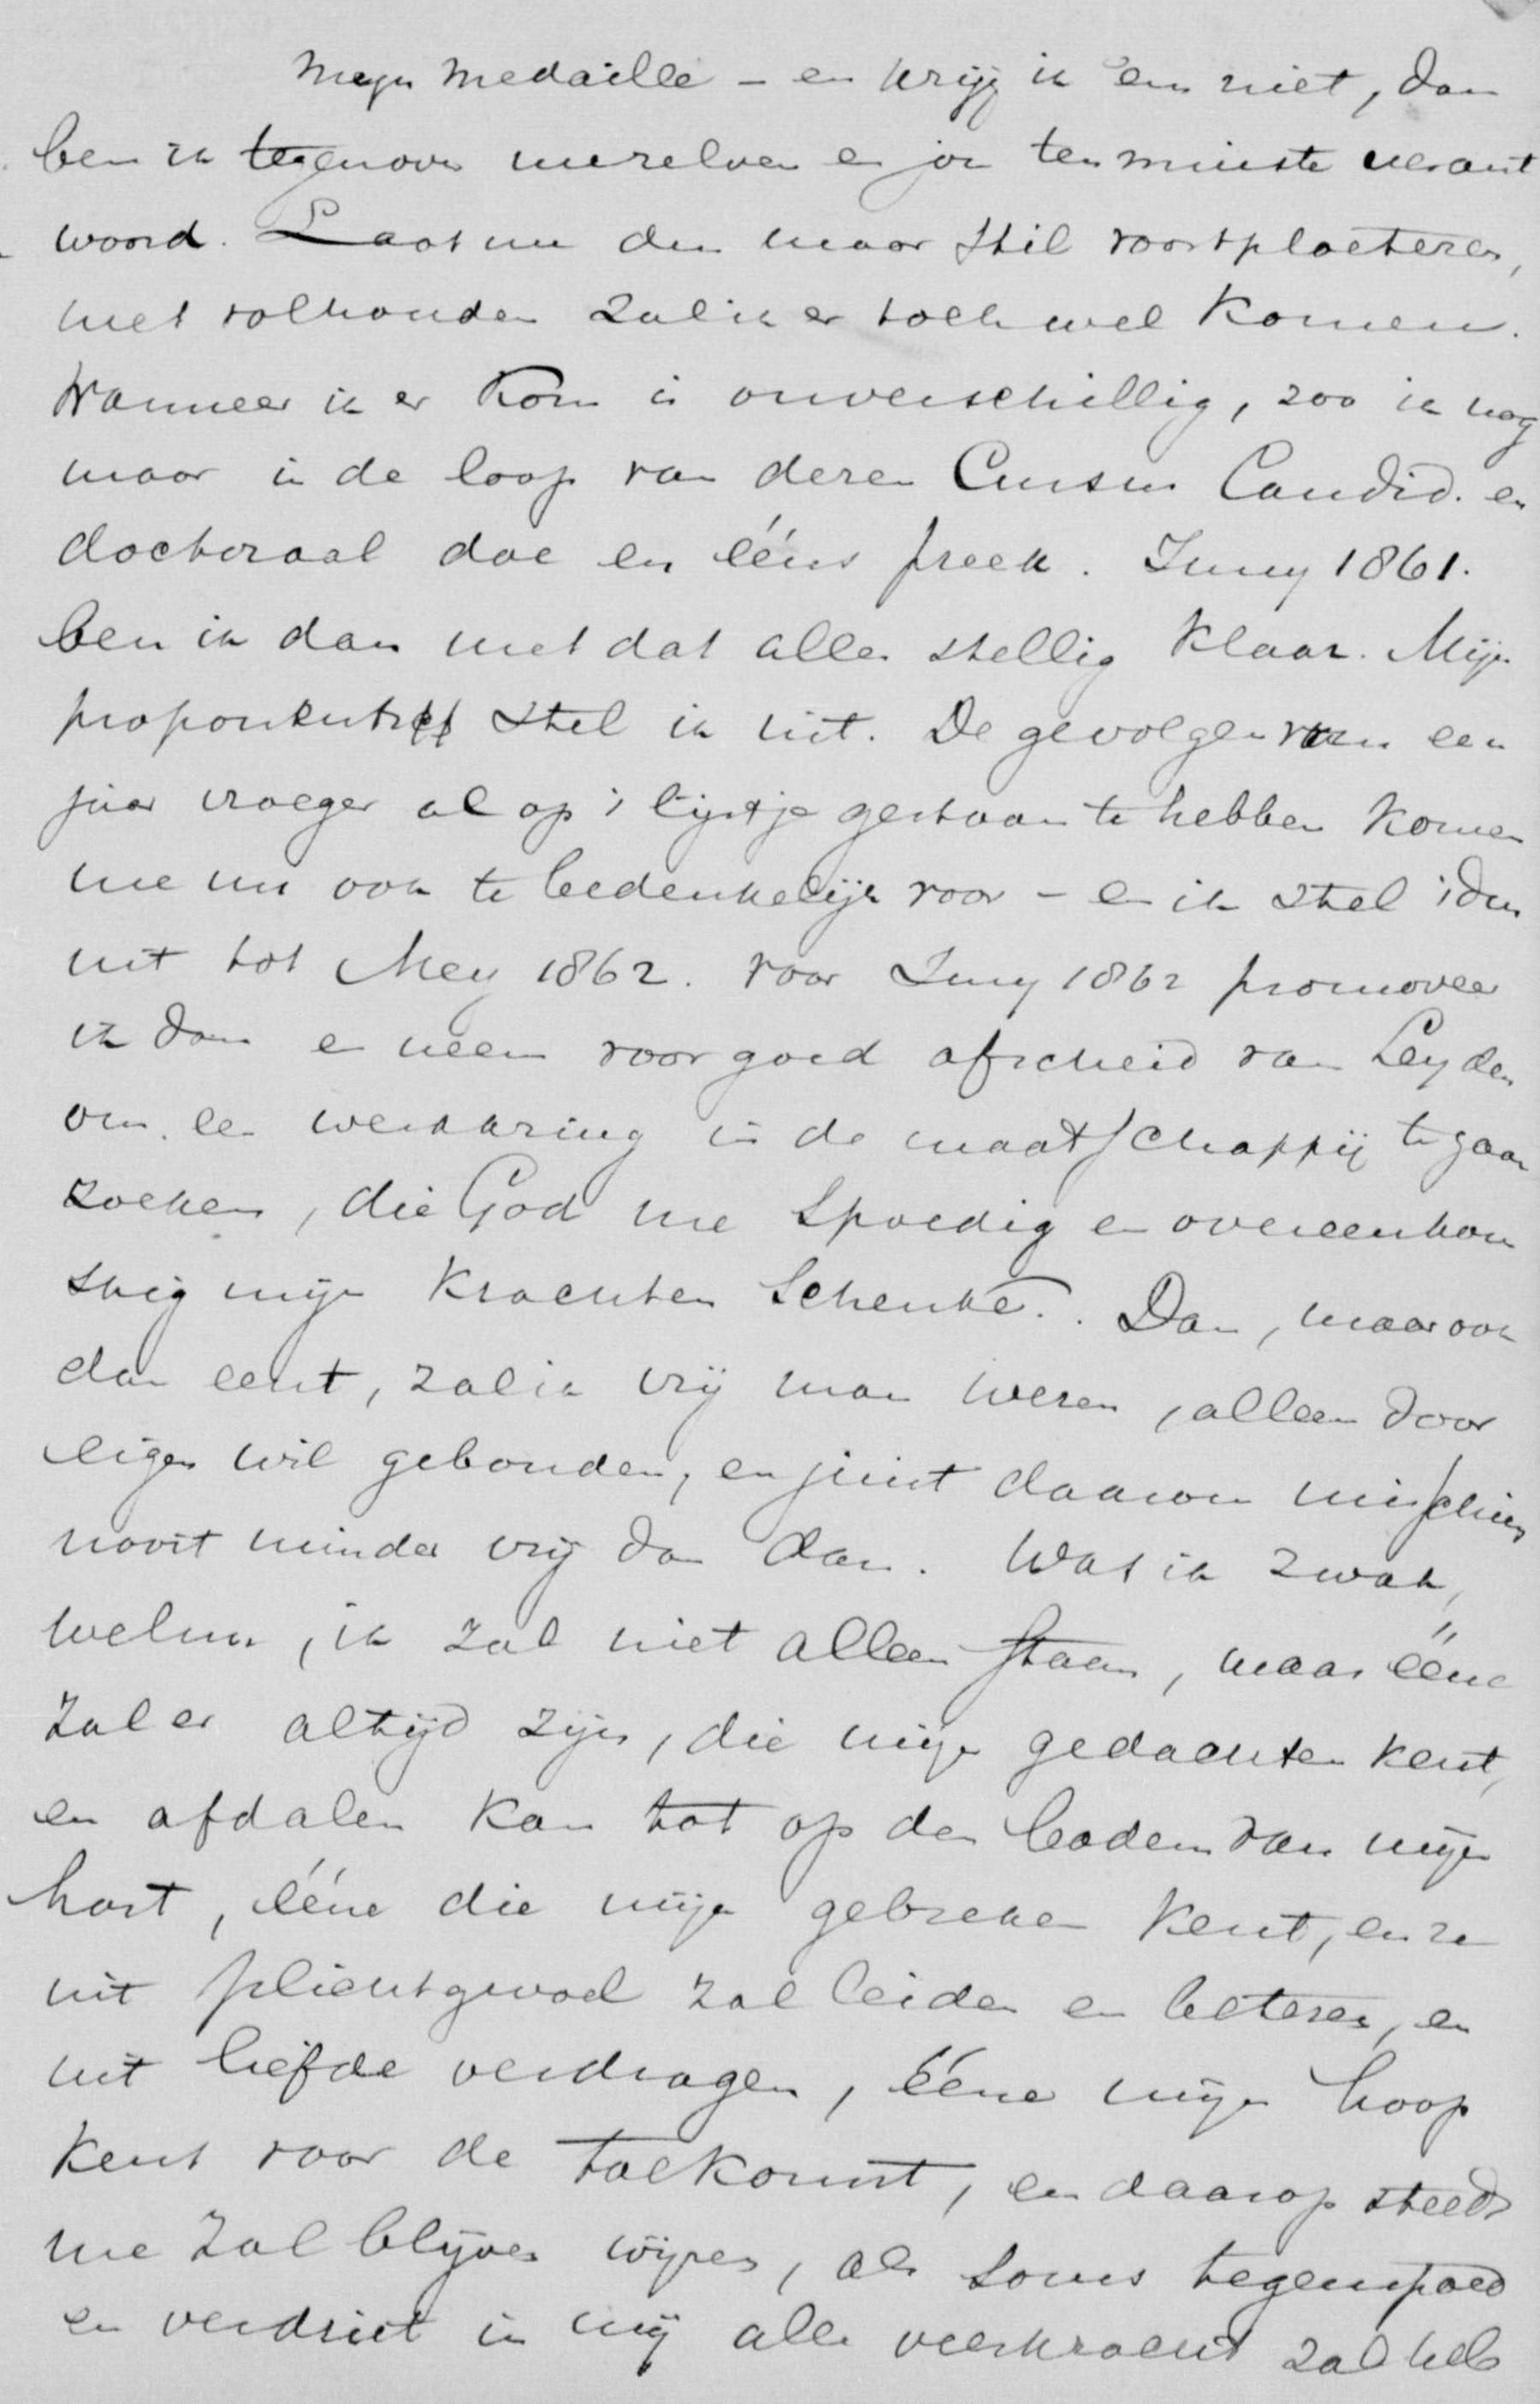 mijn medaille – en krijg ik 'em niet, dan
ben ik tegenover mezelven en jou ten minste verant
woord. Laat me dus maar stil voortploeteren,
met volhouden zal ik er toch wel komen.
Wanneer ik er kom is onverschillig, zoo ik nog
maar in de loop van dezen Cursus Candid. en
doctoraal doe en ééns preek. Juny 1861.
ben ik dan met dat alles stellig klaar. Mijn
proponents stel ik uit. De gevolgen van een
jaar vroeger al op 't lijstje gestaan te hebben komen
me nu ook te bedenkelijk voor – en ik stel 't dus
uit tot Mey 1862. voor Juny 1862 promoveer
ik dan en neem voor goed afscheid van Leyden
om een werkkring in de maatschappij te gaan
zoeken, die God me spoedig en overeenkom
stig mijn krachten schenke. Dan, maar ook
dan eerst, zal ik vrij man wezen, alleen door
eigen wil gebonden, en juist daarom misschien
nooit minder vrij dan dan. Wat ik zwak,
welnu, ik zal niet alleen staan, maar ééne
zal er altijd zijn, die mijn gedachten kent,
en afdalen kan tot op den bodem van mijn
hart, ééne die mijn gebreken kent, en ze
uit plichtgevoel zal leiden en beteren, en
uit liefde verdragen, ééne mijn hoop
kent voor de toekomst, en daarop steeds
me zal blijven wijzen, als soms tegenspoed
en verdriet in mij alle veerkracht zal heb